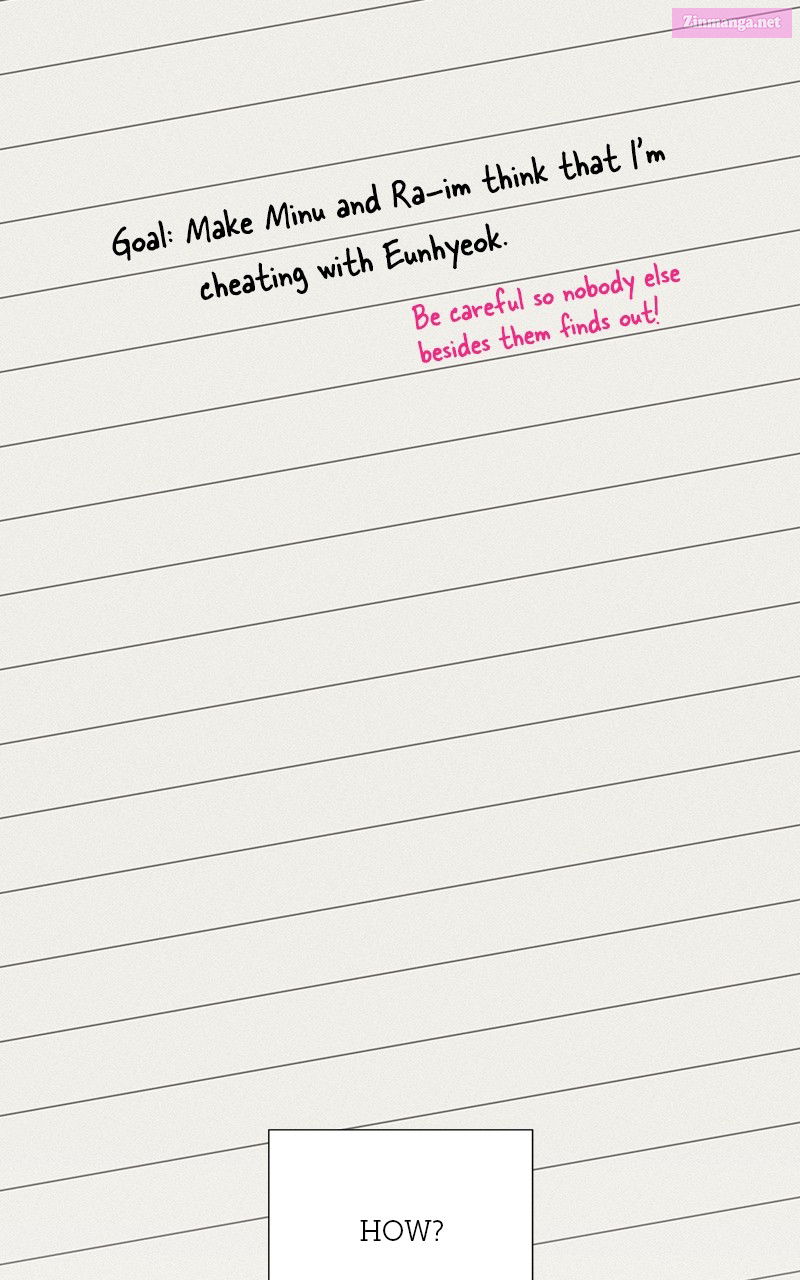 Zinmanga.net
Goal: Make Minu and Ra-im think that I'm
cheating with Eunhyeok.
Be careful so nobody else
besides them finds out!
HOW?